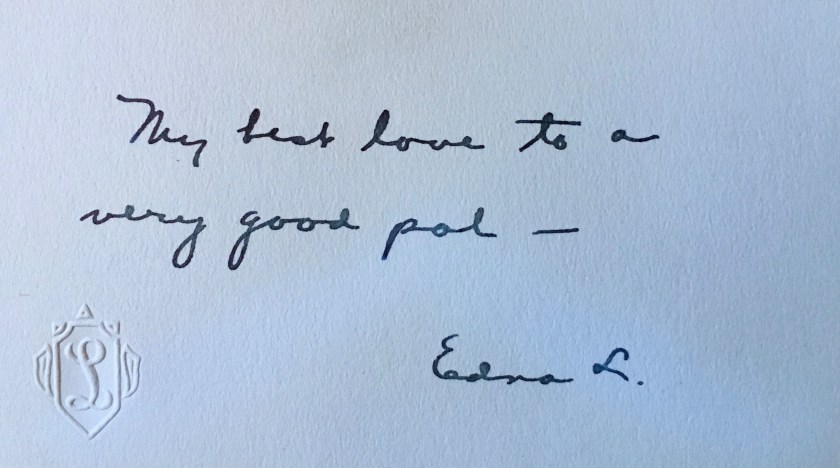 My best love to a
very good pal —
Edna L.
L